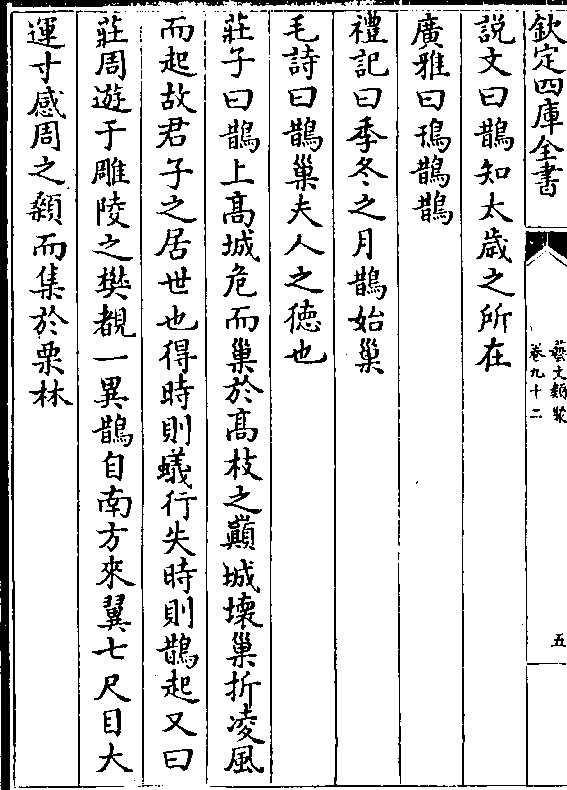 欽定四庫全書
藝文類聚
卷九十二
五
説文曰鵲知太歲之所在
廣雅曰鳱鵲鵲
禮記曰季冬之月鵲始巢
毛詩曰鵲巢夫人之徳也
莊子曰鵲上髙城危而巢於髙枝之巔城壊巢折凌風
而起故君子之居世也得時則蟻行失時則鵲起又曰
莊周遊于雕陵之樊覩一異鵲自南方來翼七尺目大
運寸感周之顙而集於栗林